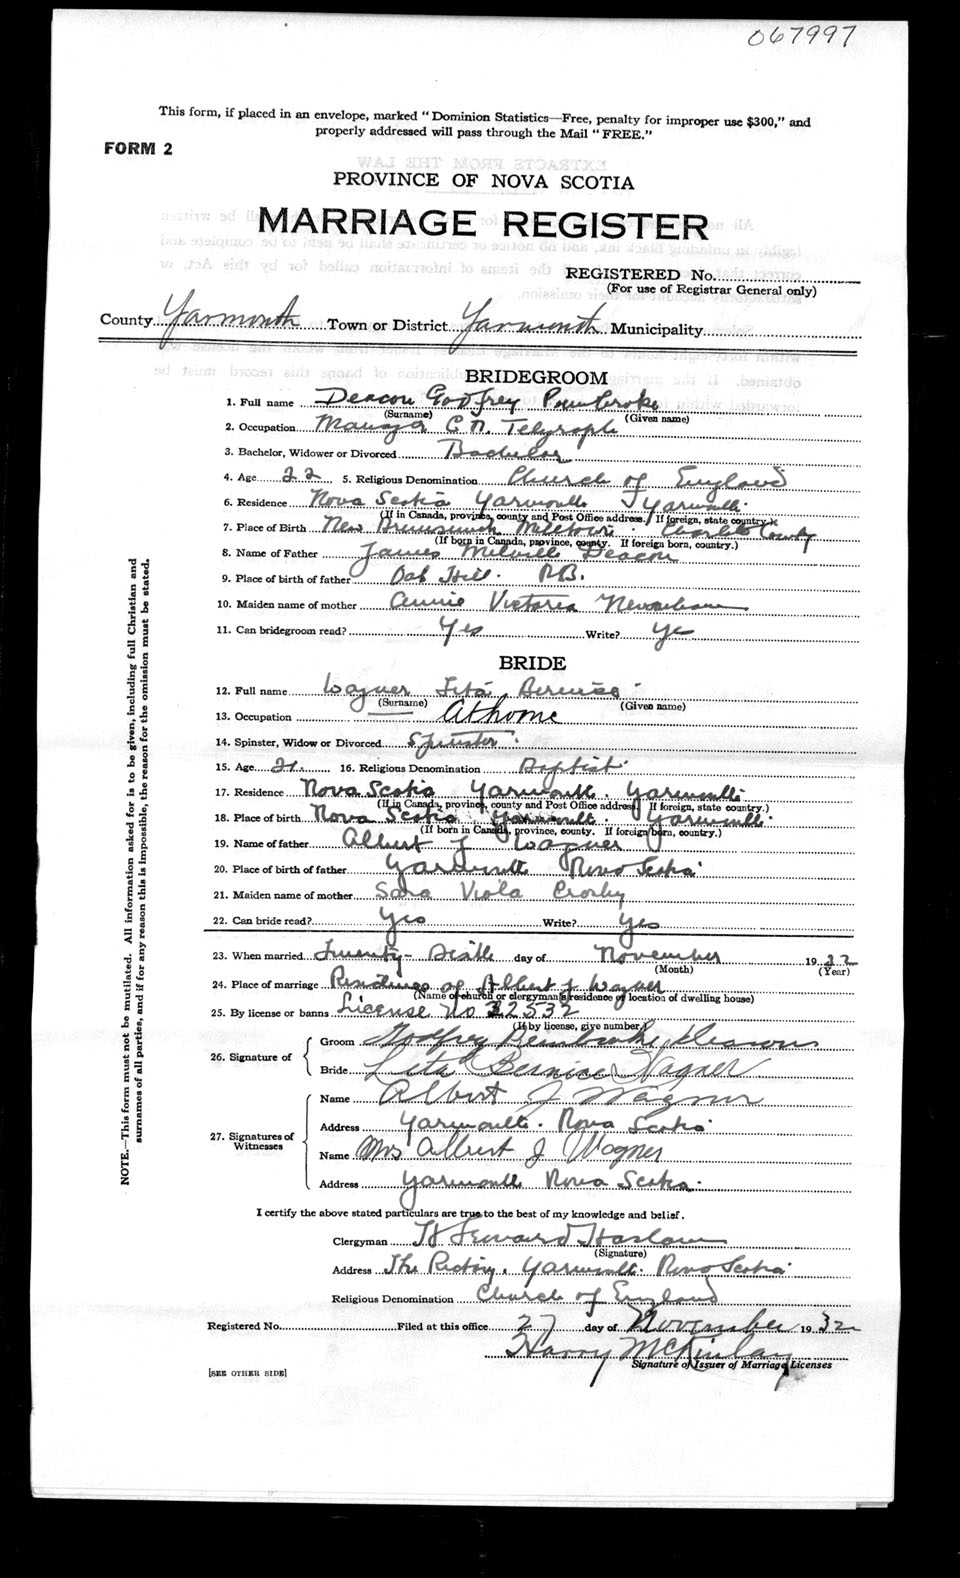 067997
This form, if placed in an envelope, marked " Dominion Statistics—Free, penalty for improper use $300," and
properly addressed will pass through the Mail " FREE."
FORM 2
PROVINCE OF NOVA SCOTIA
MARRIAGE REGISTER
REGISTERED No.
(For use of Registrar General only)
County Yarmouth Town or District Yarmouth Municipality
BRIDEGROOM
1. Full name Deacon Godfrey Pembroke
(Surname) (Given name)
2. Occupation Manager C.N. Telegraph
3. Bachelor, Widower or Divorced Bachelor
4. Age 22 5. Religious Denomination Church of England
6. Residence Nova Scotia Yarmouth Yarmouth
(If in Canada, province, county and Post Office address. If foreign, state country.)
7. Place of Birth New Brunswick Milltown Charlotte County
(If born in Canada, province, county. If foreign born, country.)
8. Name of Father James Melville Deacon
9. Place of birth of father Oak Hill. N.B.
10. Maiden name of mother Annie Victoria
11. Can bridegroom read? Yes Write? Yes
BRIDE
12. Full name Wagner Leta Berenice
(Surname) (Given name)
13. Occupation At home
14. Spinster, Widow or Divorced Spinster
15. Age 21 16. Religious Denomination Baptist
17. Residence Nova Scotia Yarmouth. Yarmouth
(If in Canada, province, county and Post Office address. If foreign, state country.)
18. Place of birth Nova Scotia Yarmouth. Yarmouth
(If born in Canada, province, county. If foreign born, country.)
19. Name of father Albert J Wagner
20. Place of birth of father Yarmouth Nova Scotia
21. Maiden name of mother Sara Viola Crosby
22. Can bride read? Yes Write? Yes
23. When married Twenty-Sixth day of November 1932
(Month) (Year)
24. Place of marriage Residence of Albert J Wagner
(Name of church or clergyman's residence or location of dwelling house)
25. By license or banns License No 32532
(If by license, give number)
26. Signature of
Groom Godfrey Pembroke Deacon
Bride Leta Bernice Wagner
27. Signatures of Witnesses
Name Albert J Wagner
Address Yarmouth. Nova Scotia
Name Mrs Albert J Wagner
Address Yarmouth Nova Scotia.
I certify the above stated particulars are true to the best of my knowledge and belief.
Clergyman Haslam
(Signature)
Address The Rectory, Yarmouth. Nova Scotia
Religious Denomination Church of England
Registered No. Filed at this office 27 day of November 1932
Harry McKinlay
Signature of Issuer of Marriage Licenses
[SEE OTHER SIDE]
NOTE.—This form must not be mutilated. All information asked for is to be given, including full Christian and
surnames of all parties, and if for any reason this is impossible, the reason for the omission must be stated.